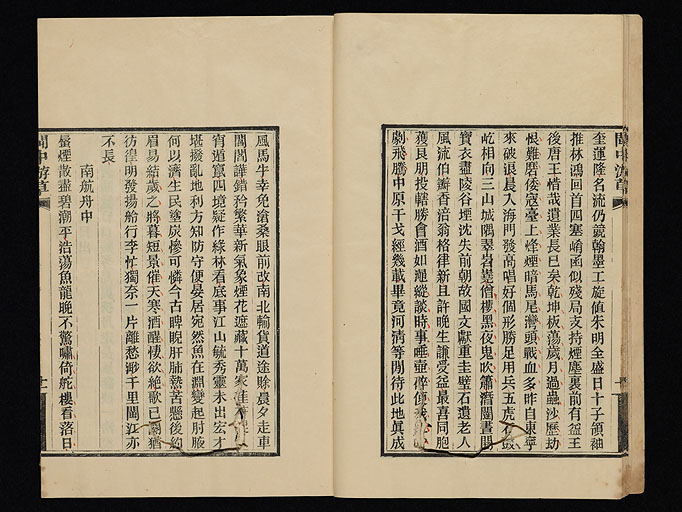 奎運隆名流仍競翰墨工旋值朱明全盛日十子領袖
推林鴻回首四塞崤函似殘局支持煙塵裏前有益王
後唐王惜哉遺業長已矣乾坤板蕩歲月過蟲沙歷劫
恨難磨倭寇臺上烽煙暗馬尾灣頭戰血多昨自東寧
來破浪晨入海門發高唱好個形勝足用兵五虎
屹相向三山城隅翠岩嶤僧樓黑夜鬼吹簫潛闥書開
寶衣盡陵谷埋沈失前朝故國文獻重圭璧石遺老人
風流伯瓣香涪翁格律新且許晚生謙受益最喜同胞
獲良朋投轄勝會酒如澠縱談時事唾壺碎
劇飛騰中原干戈經幾載畢竟河清等閒待此地真成
風馬牛幸免滄桑眼前改南北輸貨道途賒晨夕走車
闐闐譁錯矜繁華新氣象煙花遮藏十萬家
宵遁竄四境疑作綠林看底事江山毓秀靈未出宏才
堪撥亂地利方知防守便晏居宛然魚在淵變起肘腋
何以濟生民塗炭慘可憐今古睥睨肝肺熱苦懸後約
眉易結歲之將暮短景催天寒酒醒悽欲絕歌已闌猶
彷徨明發揚舲行李忙獨奈一片離愁渺千里閩江亦
不長
南航舟中
蜃煙散盡碧潮平浩蕩魚龍晚不驚嘯倚舵樓看落日
閩中游草
十一